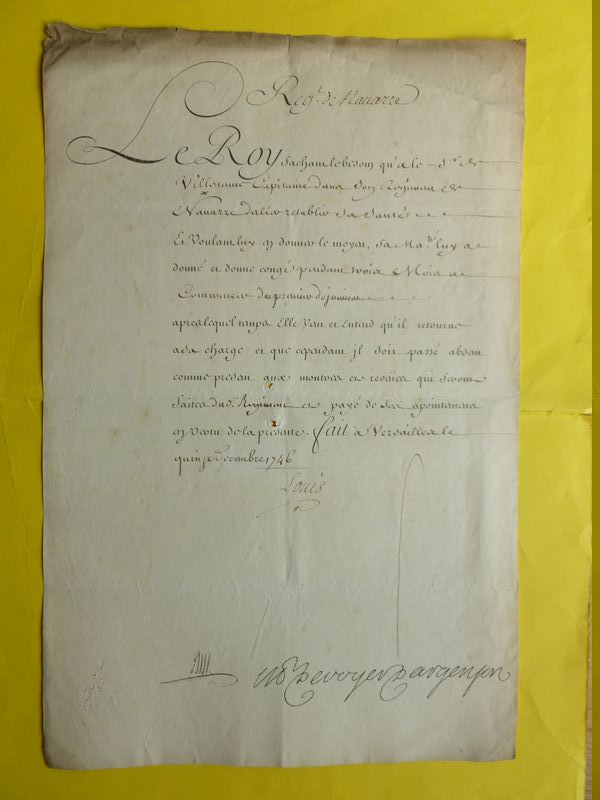 Reg.t de Navarre
Le Roy sachant le besoin qu'a le S.r de
Capitaine dans son Regiment de
Navarre d'aller retablir sa santé
Et voulant luy en donner le moyen, sa Ma.té luy a
donné et donne congé pendant trois Mois a
Commencer du premier de janvier
apres lequel temps Elle veut et Entend qu'il retourne
a sa charge et que cependant jl soit passé absent
comme present aux montres et reveües qui seront
faites dud. Regiment et payé de ses apointemens
en vertu de la presente. fait a Versailles le
quinze Decembre 1746
Louis
M P De voyer D'argenson